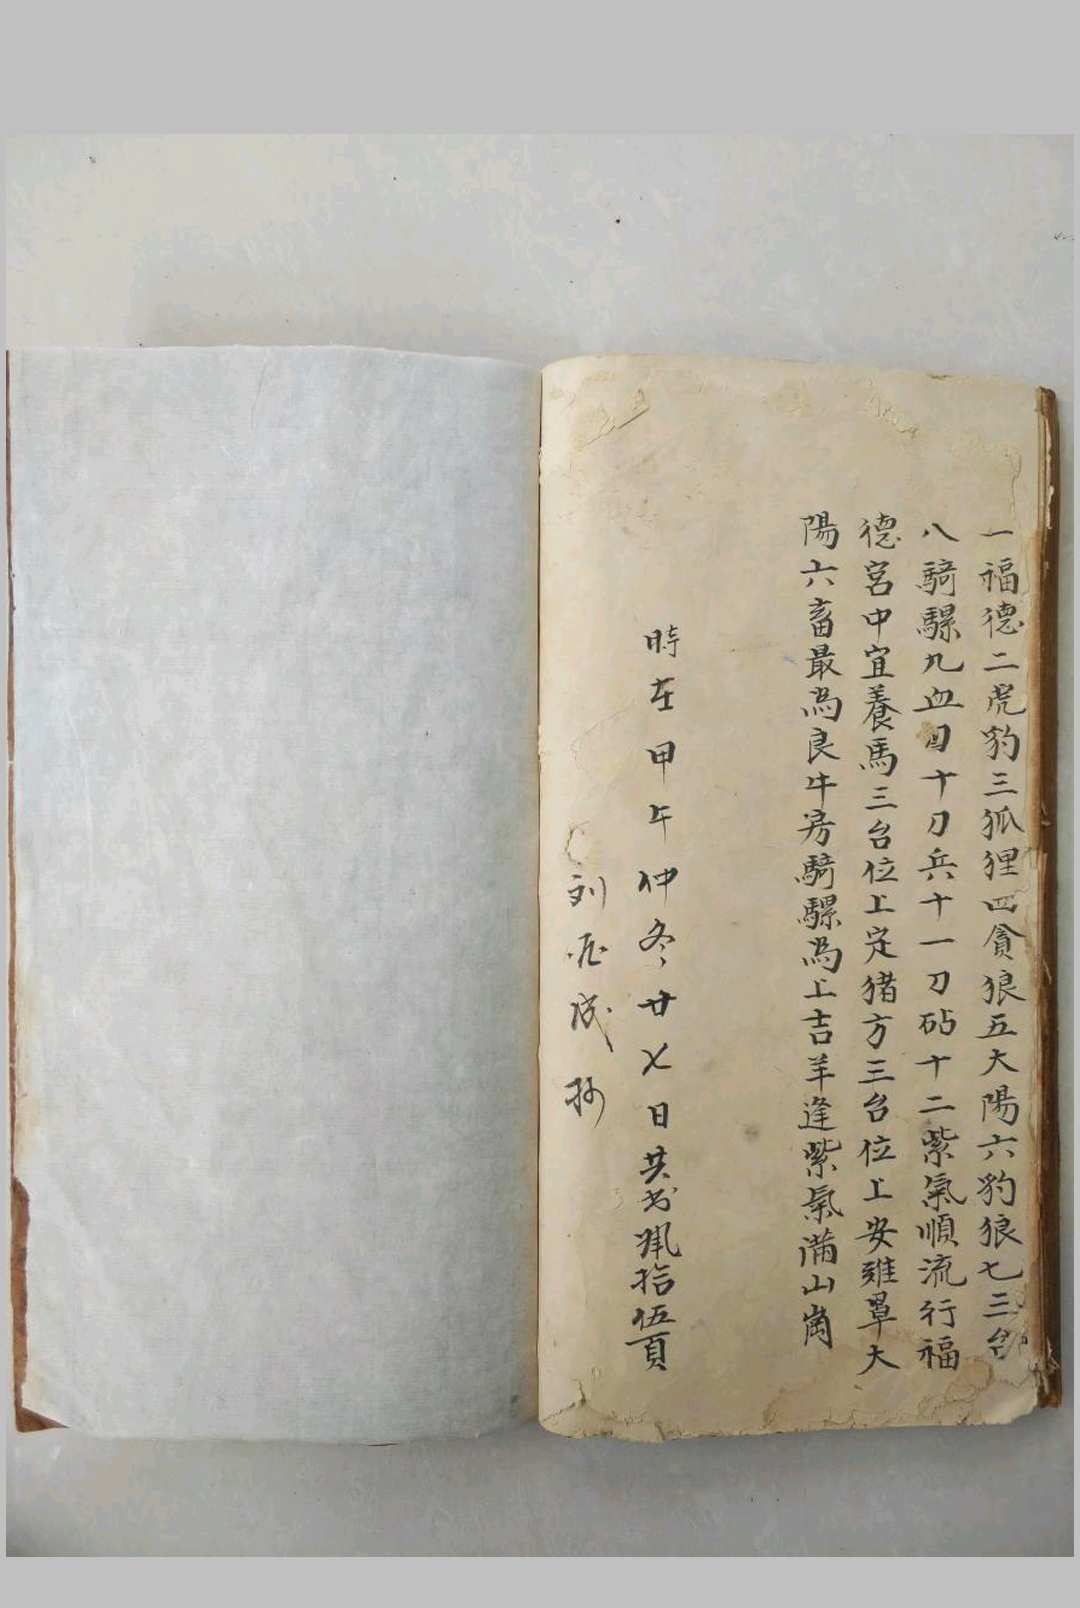 一福德二虎豹三狐狸四貪狼五大陽六豹狼七三台
八騎騾九血刃十刀兵十一刀砧十二紫氣順流行福
德宮中宜養馬三台位上定猪方三台位上安雞罩大
陽六畜最為良牛房騎騾為上吉羊逢紫氣滿山崗
時在甲午仲冬廿七日共書 拾伍頁
刘 成抄